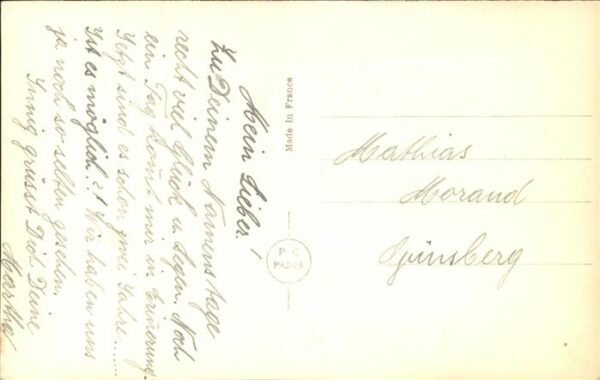 Mein Lieber!
Zu Deinem Namenstage
recht viel Glück u. Segen. Noch
ein Tag kommt mir in Erinnerung.
Jetzt sind es schon zwei Jahre......
Ist es möglich?! Wir haben uns
ja noch so selten gesehen.
Innig grüsst Dich Deine
Martha
Made in France
P C
PARIS
Mathias
Morand
Günsberg